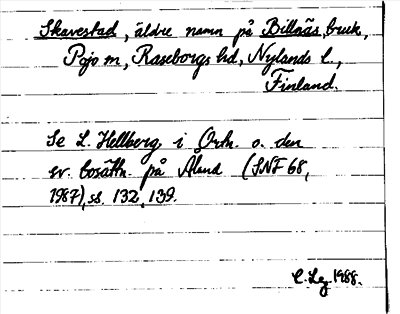 Skavestad, äldre namn på Billnäs bruk,
Pojo sn, Raseborgs hd, Nylands l.,
Finland.
Se L. Hellberg i Ortn. o. den
sv. bosättn. på Åland (SNF 68,
1987), ss. 132, 139.
1988.